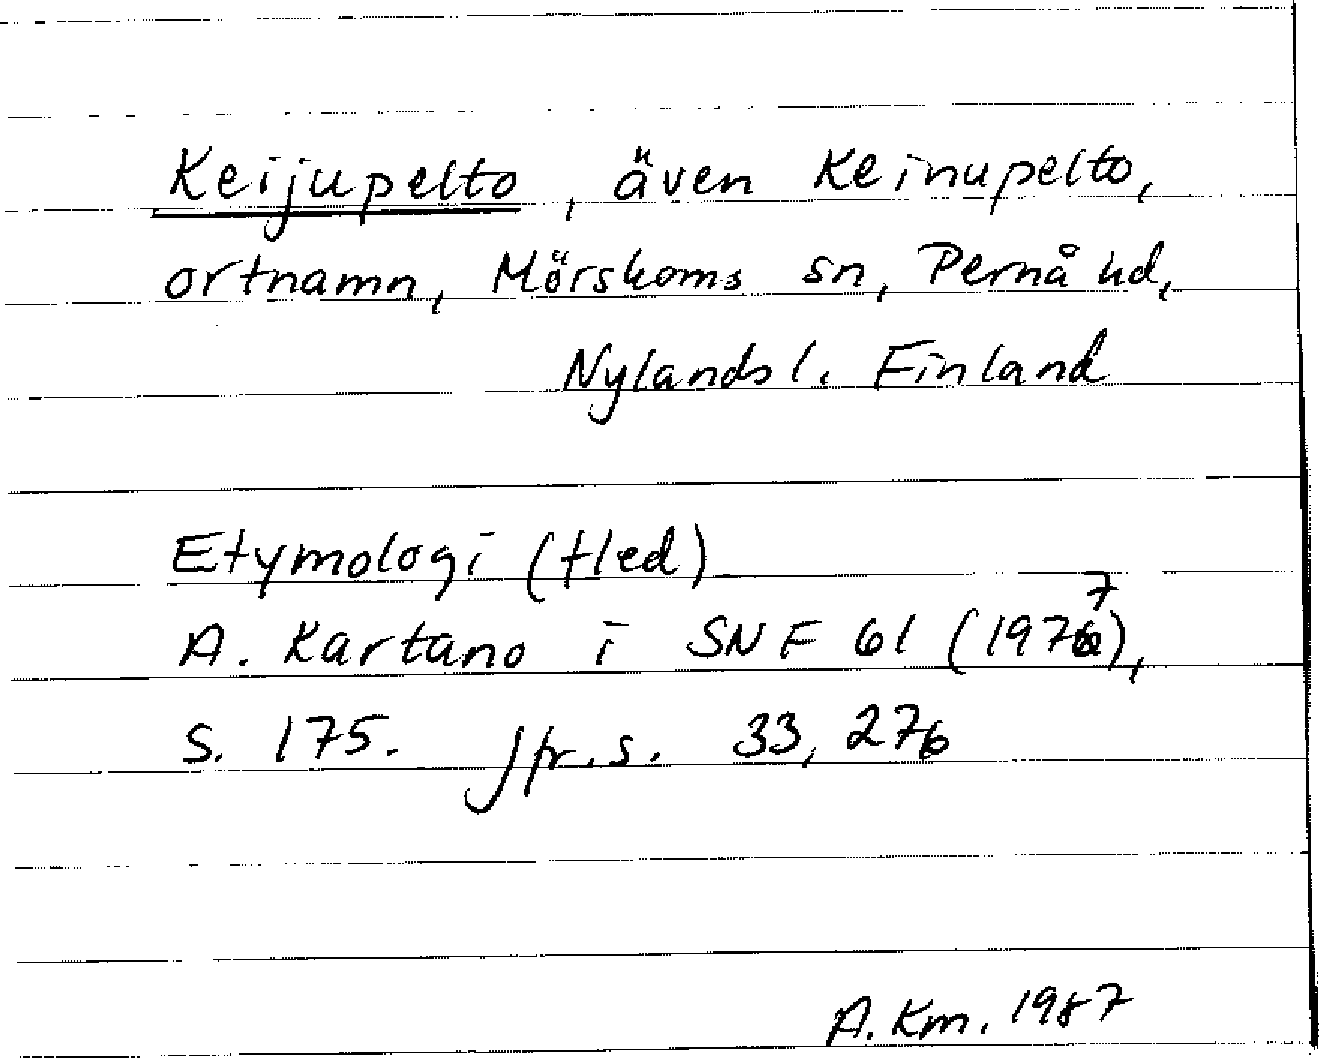 Keijupelto, även Keinupelto,
ortnamn, Mörskoms sn, Pernå hd,
Nylands l. Finland
Etymologi (fled)
A. Kartano i SNF 61 (1977),
S. 175. Jfr. s. 33, 276
A. Km. 1987